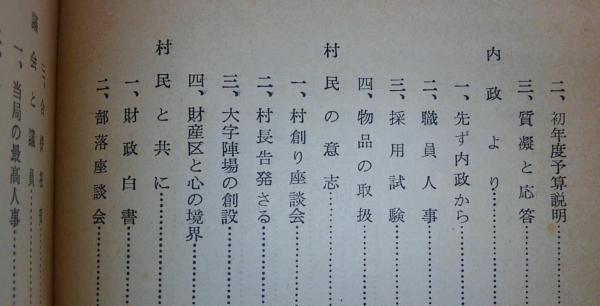 二、初年度予算説明
三、質凝と応答
内政より
一、先ず内政から
二、職員人事
三、採用試験
四、物品の取扱
村民の意志
一、村創り座談会
二、村長告発さる
三、大字陣場の創設
四、財産区と心の境界
村民と共に
一、財政白書
二、部落座談会
議会と議員
一、当局の最高人事